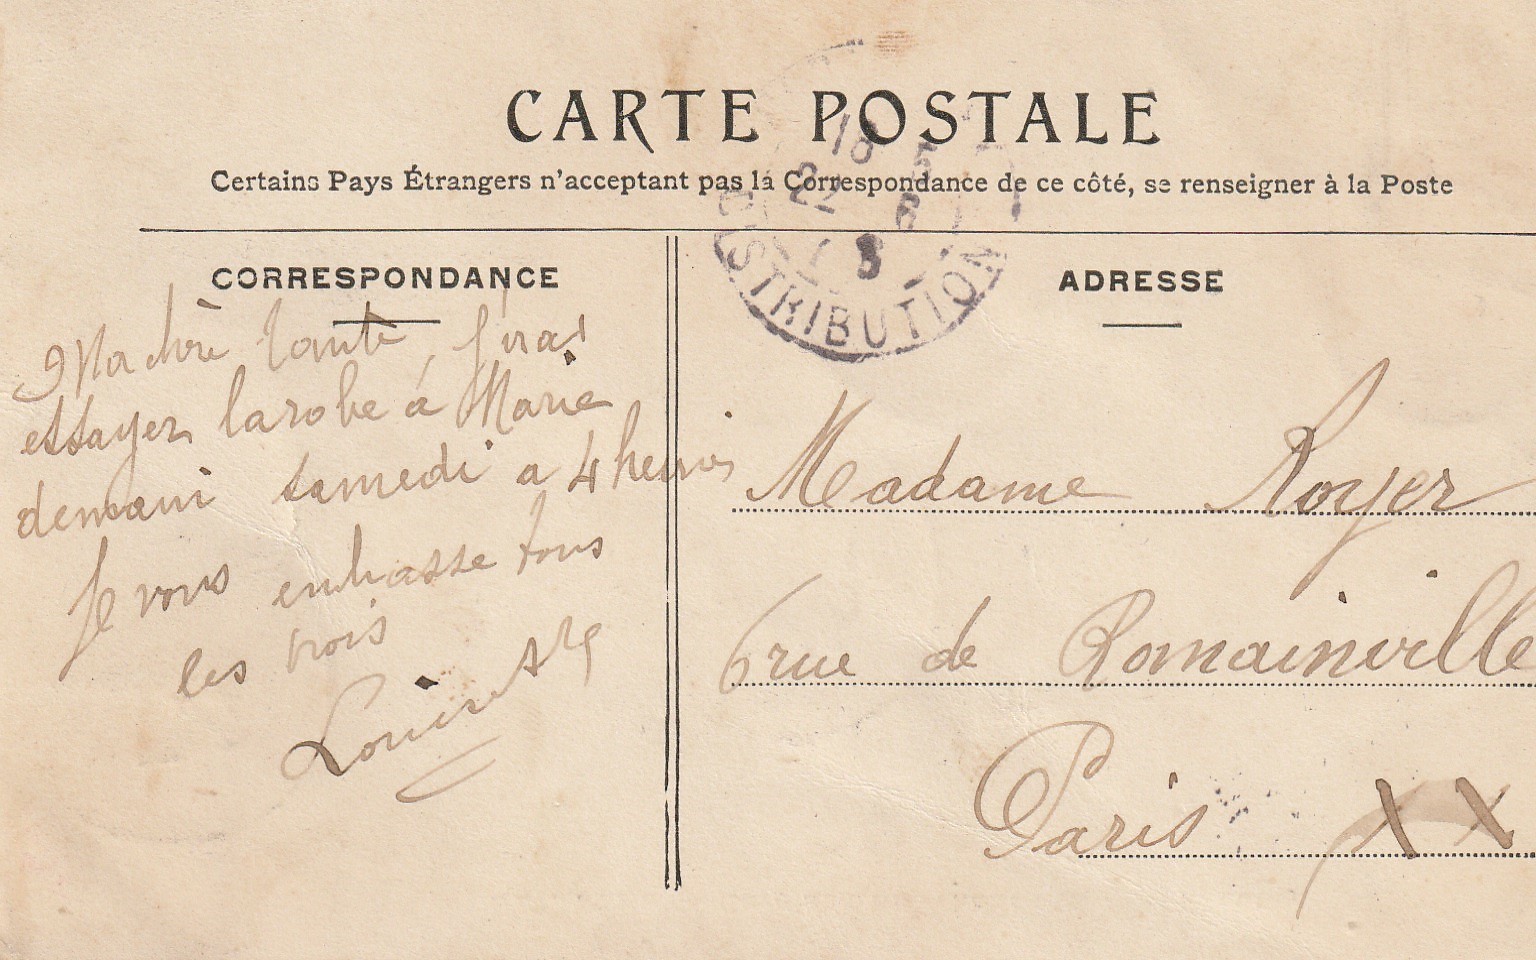 CARTE POSTALE
Certains Pays Étrangers n'acceptent pas la Correspondance de ce côté, se renseigner à la Poste
CORRESPONDANCE
Ma chère tante, j'irai
essayer la robe à Marie
demain samedi a 4 heures
Je vous embrasse tous
les trois
Louise
ADRESSE
Madame Royer
6 rue de Romainville
Paris XX
18 5
22 6
DISTRIBUTION